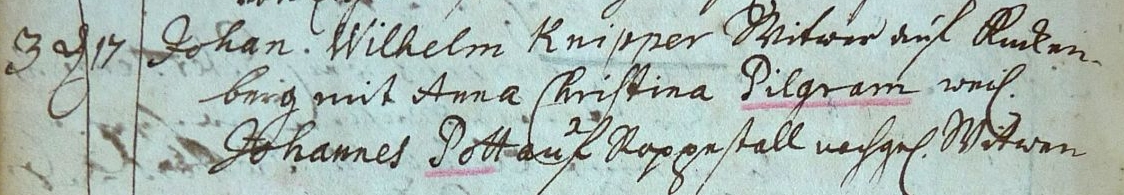 3 17 Johan. Wilhelm Knipper Witwer auf Rucken-
berg mit Anna Christina Pilgram weil.
Johannes Pott auf Roppestall nachgel. Witwen